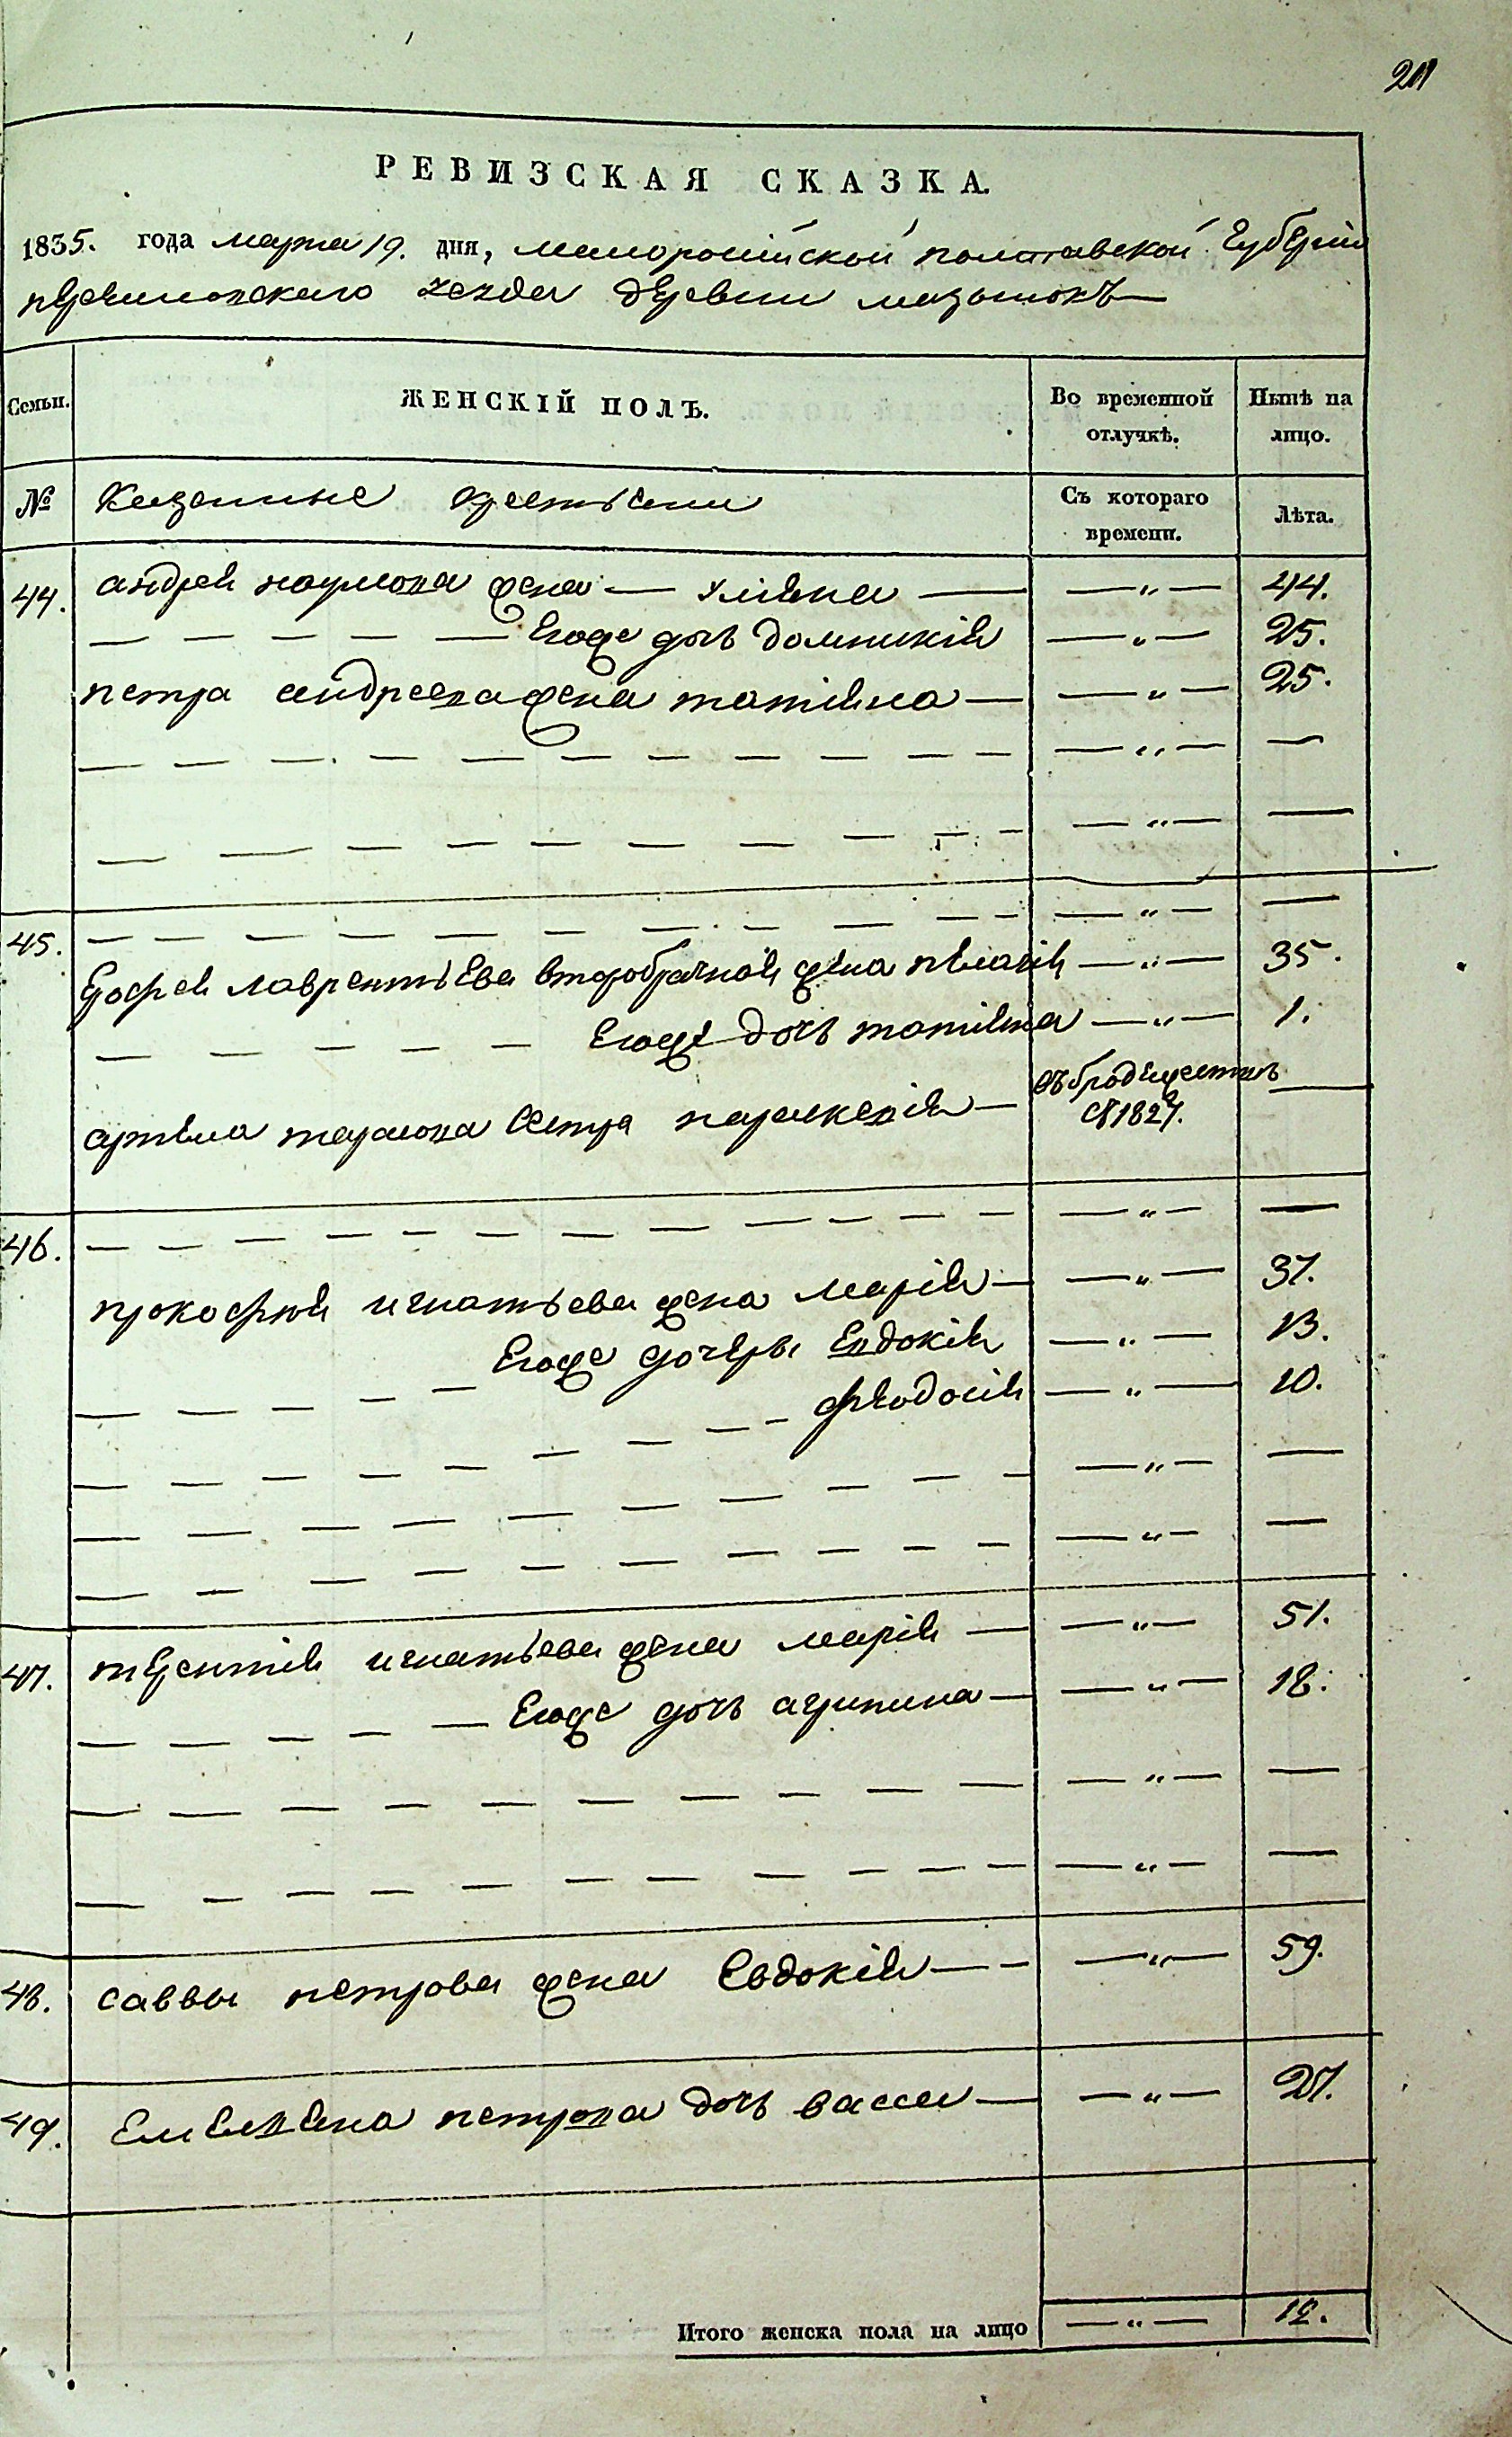 201
РЕВИЗСКАЯ СКАЗКА.
1835. года марта 19. дня, малоросійской полтавской губерніи
уезда деревни мазынокъ
Семьи. ЖЕНСКІЙ ПОЛЪ. Во временной отлучкѣ. Нынѣ на лицо.
№ Казенные крестьяни Съ котораго времени. Лѣта.
44. андрея наумова жена — уліяна — — „ — 44.
— — — — — Егоже дочь домникія — „ — 25.
петра андреева жена татіяна — — „ — 25.
— — — — — — — — — — — „ — —
— — — — — — — — — — — „ — —
45. — — — — — — — — — — — „ — —
Ерофея лаврентьева второбрачная жена пелагія — „ — 35.
— — — — — Егоже дочь татіяна — „ — 1.
артема тарасова сестра параскевія — въ бродяжествѣ —
съ 1827.
46. — — — — — — — — — — — „ — —
прокофия игнатьева жена марія — — „ — 37.
— — — — — Егоже дочеры Евдокія — „ — 13.
— — — — — — — — феодосія — „ — 10.
— — — — — — — — — — — „ — —
— — — — — — — — — — — „ — —
47. терентия игнатьева жена марія — — „ — 51.
— — — — — Егоже дочь агрипина — — „ — 18.
— — — — — — — — — — — „ — —
— — — — — — — — — — — „ — —
48. саввы петрова жена Евдокія — — — „ — 59.
49. Емельяна петрова дочь васса — — „ — 27.
Итого женска пола на лицо — „ — 12.